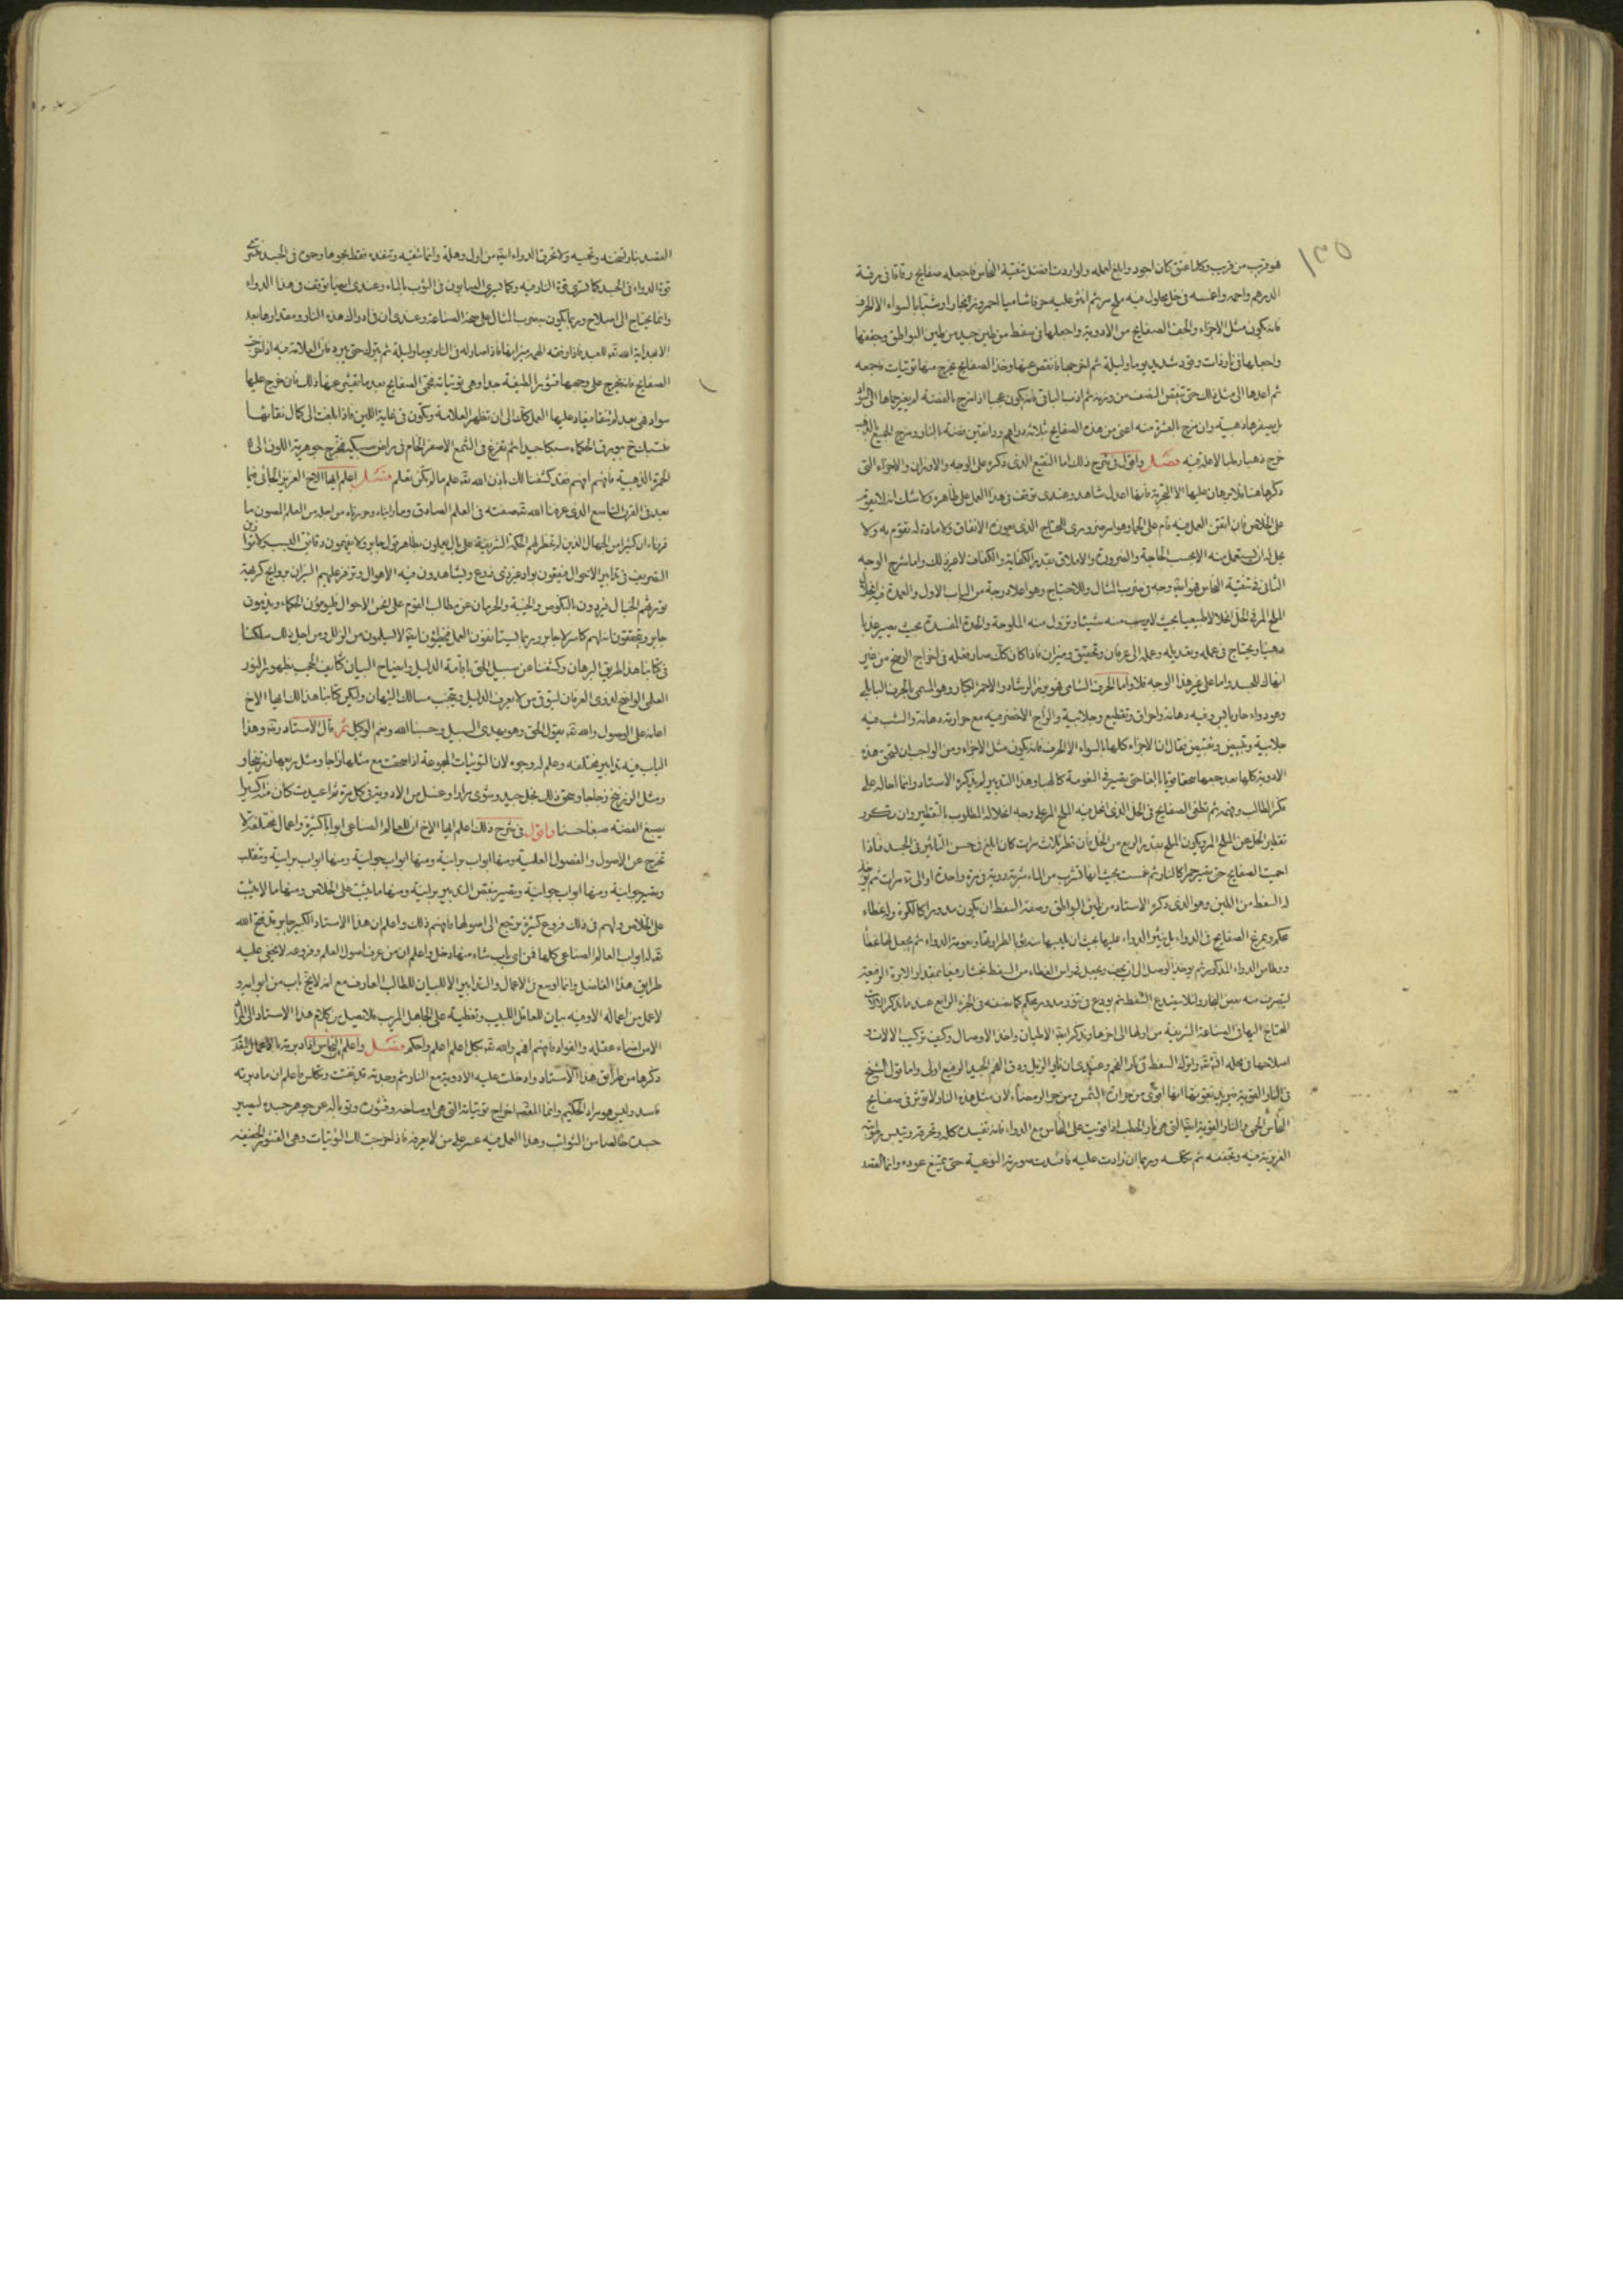 ١٣٥
هو قريب من قريب وكلما عتق كان اجود وابلغ لعمله ولو اردت افضل تنقية النحاس فاجعله صفايح رقاقا في رقة
الدرهم واحمه واغمسه في خل محلول فيه ملح مر ثم انثر عليه حرفا شاميا احمر وزنجارا وشبا بالسواء الا الحرف
فانه يكون مثل الاجزاء والحف الصفايح من الادوية واجعلها في سفط من طين جيد من طين البواطق وجففها
واجعلها في نار ذات وقود شديد يوما وليلة ثم اخرجها فانفض عنها وخذ الصفايح يخرج منها توتيات فاجمعه
ثم اعدها الى مثل ذلك حتى تنقص النصف من وزنه ثم اذب الباقي فانه يكون عجبا اذا مزج بالفضة لم يغيرها الى
بل يصفرها ذهبية وان مزج بالعشرة منه اعني من هذه الصفايح ثلاثة دراهم ودانقين فضة بالنار ومزج الجميع بالذهب
خرج ذهبا رطبا لا علة فيه فصل واقول في شرح ذلك اما النقيع الذي ذكره على الوجه والاوزان والاجزاء التي
ذكرها هنا فلا برهان عليها الا التجربة فانها اعدل شاهد وعندي توقف في هذا العمل على ظاهره ولا شك انه لا يقوم
على الخلاص فان اتقن العمل فيه قام على الحما وهو امر ضروري للمحتاج الذي يعوزه الانفاق ولا مادة له تقوم به ولا
يحل له ان يستعمل منه الا بحسب الحاجة والضرورة والاملاق بقدر الكفاية والكفاف لا غير ذلك واما شرح الوجه
الثاني في تنقية النحاس فهو اية وجه في ضرب المثال وللاحتياج وهو اعلا درجة من الباب الاول والعمدة فيه انحلال
الملح المر في الخل انحلالا طبيعيا بحيث لا يرسب منه شيئا وتزول منه الملوحة والحدة المفسدة بحيث يصير عذبا
دهنيا ويحتاج في عمله وتعديله وحله الى عرفان وتحقيق وميزان فاذا كان كذلك صار فعله في اخراج الوسخ من غير
انهاك للجسد واما على غير هذا الوجه فلا واما الحرف الشامي فهو بزر الرشاد والاحمر الكبار وهو المسمى بالحرف البابلي
وهو دواء حار يابس وفيه دهانة واحراق وتقطيع وجلابية والزاج الاخضر فيه مع حرارته دهانة والشب فيه
جلابية وتبييض وتقبيض فقال ان الاجزاء كلها بالسواء الا الحرف فانه يكون مثل الاجزاء ومن الواجب ان تسحق هذه
الادوية كلها بعد جمعها سحقا قويا بالغا حتى تصير في النعومة كالهبا وهذا التدبير لم يذكره الاستاد وانما احاله على
فكر الطالب وفهمه ثم تطفى الصفايح في الخل الذي انحل فيه الملح المر على وجه انحلاله المطلوب بالتقطير وان تكرر
تقطير الخل عن الملح المر ويكون الملح بقدر الربع من الخل فان قطر ثلاث مرات كان ابلغ في حسن التاثير في الجسد فاذا
احميت الصفايح حتى تصير جمرا كالنار ثم غمست بحيث انها تشرب من الماء شربة روية في مرة واحدة او الى ثلاث مرات ثم يؤخذ
له السفط من الطين وهو الذي ذكره الاستاد من طين البواطق وصفة السفط ان يكون مدورا كالكرة وله غطاء
محكم ويمرغ الصفايح في الدواء بل ينثر الدواء عليها بحيث ان يلبسها من نواحي اطرافها وبعومة الدواء ثم يجعل لها غطاء
ووطا من الدواء المذكور ثم يوخذ الوصل الى ان يجف ويجعل في راس الغطاء من السفط بخشا رفيعا بمقدار الابرة الرفيعة
ليتصرف منه بعض البخار ولئلا يتصدع السفط ثم يودع في تنور مدور محكم كما نصفه في الجزء الرابع عند ما نذكر الالات
المحتاج اليها في الصناعة الشريفة من اولها الى اخرها ونذكر اية الاطيان واخذ الاوصال وكيف تركيب الالات و
اصلاحها في محله ان شاء الله وقوله السفط في نار الفحم وعندي ان نار الزبل ودق الفحم الجيد الرفيع اولى واما قول الشيخ
في النار القوية فيريد بقوتها انها اقوى من حرارة الشمس ومن حر الرمضاء لان مثل هذه النار لا تؤثر في صفايح
النحاس المحمى والنار القوية ايضا التي هي نار الحطب اذا قويت على النحاس مع الدواء فانه تفسده كله وتحرقه وتيبس رطوبته
الغريزية فيه وتجففه ثم تكلسه وربما ان زادت عليه فافسدت صورته النوعية حتى يمتنع عوده وانما القصد
القصد بنار تسخنه وتحميه ولا تحرق الدواء اية من اول وهلة وانما تشقيه وتنفده فقط بجوهرا وحرق في الجسد فتسري
قوة الدواء في الجسد كما تسري قوة النار فيه وكما يسري الصابون في الثوب بالماء وعندي ايضا توقف في هذا الدواء
وانما يحتاج الى اصلاح وربما يكون بضرب المثال على جهة الصناعة وعندي ان في ادراك هذه النار ومقدارها بعد
الا هداية الله تعالى للعبد فاذا وفقه الهمه ميزانها فاذا صار له في النار يوما وليلة ثم يترك حتى يبرد فان العلامة فيه اذا اخرجت
الصفايح فانه يخرج على وجهها قشورا لطيفة جدا وهي توتياته فنحي الصفايح بعد ما تقشر عنها ذلك فان خرج عليها
سواد فهي بعد لم تنقا فيعاد عليها العمل كذلك الى ان تظهر العلامة وتكون في نهاية اللين فاذا بلغت الى كمال نقائها
فتسبك ح ببورق الحكماء سبكا جيدا ثم تفرغ في الشمع الاصفر الخام في راض سبيكة فتخرج جوهرية اللون الى
الحمرة الذهبية فافهم افهم فقد كشفنا لك باذن الله تعالى علم ما لم تكن تعلم فصل اعلم ايها الاخ العزيز الجائي فيما
بعد في القرن التاسع الذي عرفنا الله تعالى صفته في العلم الصادق وما رايناه وحررناه من اجله من العلم المصون ما
قررناه ان كثيرا من الجهال الذين لم تخطر لهم الحكمة الشريفة على بال يعملون بظاهر قول جابر ولا يفهمون دقائق الطبيب ولا قوانين
التصريف في تدابير الاحوال فيقعون بواد غير ذي زرع ويشاهدون فيه الاهوال وتزفر عليهم النيران بروايح كريهة
تورثهم الخبال فيردون بالكؤوس والخيبة والحرمان عن مطالب القوم على انحس الاحوال فيلومون الحكماء ويذمون
جابر ويحققون انه لهم كاسر لا جابر وربما يستانفون العمل فيخطؤن اية لا يسلمون من الزلل ومن اجل ذلك سلكنا
في كتابنا هذا طريق البرهان وكشفنا عن سبيل الحق باقامة الدليل وايضاح البيان كتكشف الحجب بظهور النور
العلي الواضح لذوي العرفان لنوقف من لا يعرف الدليل ويتجنب مسالك التيهان وليكن كتابنا هذا لك ايها الاخ
اعانه على الوصول والله تعالى يقول الحق وهو يهدي السبيل وحسبنا الله ونعم الوكيل ثم قال الاستاد رحمه الله وهذا
الباب فيه تدابير مختلفه وعلم له وجوه لان التوتيات المجموعة اذا سحقت مع مثلها زاجا ومثل ربعها زنجارا و
ومثل الزرنيخ زجاجا وسحق ذلك بخل جيد وشوى مرارا وغسل من الادوية في كل مرة ثم اعيدت كان منه اكسيرا
يصبغ الفضة صبغا حسنا واقول في شرح ذلك اعلم ايها الاخ ان للعالم الصناعي ابوابا كثيرة واعمال مختلفة لا
تخرج عن الاصول والفصول العلمية ومنها ابواب برانية ومنها ابواب جوانية ومنها ابواب برانية وتنقلب
وتصير جوانية ومنها ابواب جوانية وتصير بنقص التدبير برانية ومنها ما يثبت على الخلاص ومنها ما لا يثبت
على الخلاص ولهم في ذلك فروع كثيرة ترجع الى اصولها فافهم ذلك واعلم ان هذا الاستاد الكبير جابر قد فتح الله
تعالى له ابواب العالم الصناعي كلها فمن اي باب شاء منها دخل واعلم ان من عرف اصول العلم وفروعه لا يخفى عليه
طرايق هذا الفاضل وانما اوسع في الاعمال والتدابير الا للبيان للطالب العارف مع انه لا يخ باب من ابوابه و
لا عمل من اعماله الا وفيه بيان للعاقل اللبيب وتغطية على الجاهل المريب فلا تصل من كلام هذا الاستاد الى المراد
الا من اضاء عقله والفواد فافهم افهم والله تعالى بكل اعلم اعلم واحكم فصل واعلم ان النحاس اذا دبر بهذه الاعمال التي قد
ذكرها من طرايق هذا الاستاد وادخلت عليه الادوية مع النار ثم وجدته قد تفتت وتكلس فاعلم ان ما دبرته
فاسد وليس هو مراد الحكيم وانما القصد اخراج توتياته التي هي اوساخه وقشوره وتوباله عن جوهر جسده ليصير
جسدا خالصا من الشوائب وهذا العمل فيه عسر على من لا يعرفه فاذا خرجت لك التوتيات وهي القشور الخفيفه